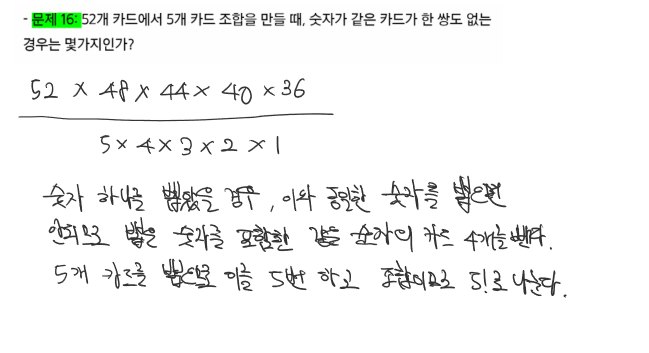 - 문제 16: 52개 카드에서 5개 카드 조합을 만들 때, 숫자가 같은 카드가 한 쌍도 없는
경우는 몇가지인가?
52 × 48 × 44 × 40 × 36
5 × 4 × 3 × 2 × 1
숫자 하나를 뽑았을 경우, 이와 동일한 숫자를 뽑으면
안되므로 뽑은 숫자를 포함한 같은 숫자의 카드 4개를 뺀다.
5개 카드를 뽑으므로 이를 5번 하고 조합이므로 5!로 나눈다.